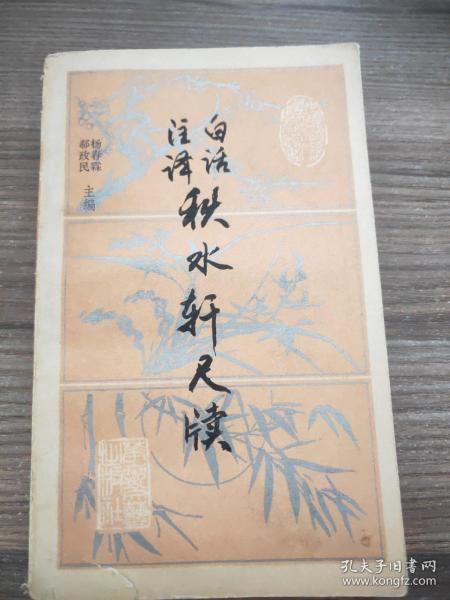 白话
注译
秋水轩尺牍
杨春霖
郝政民
主编
孔夫子旧书网
www.kongfz.com